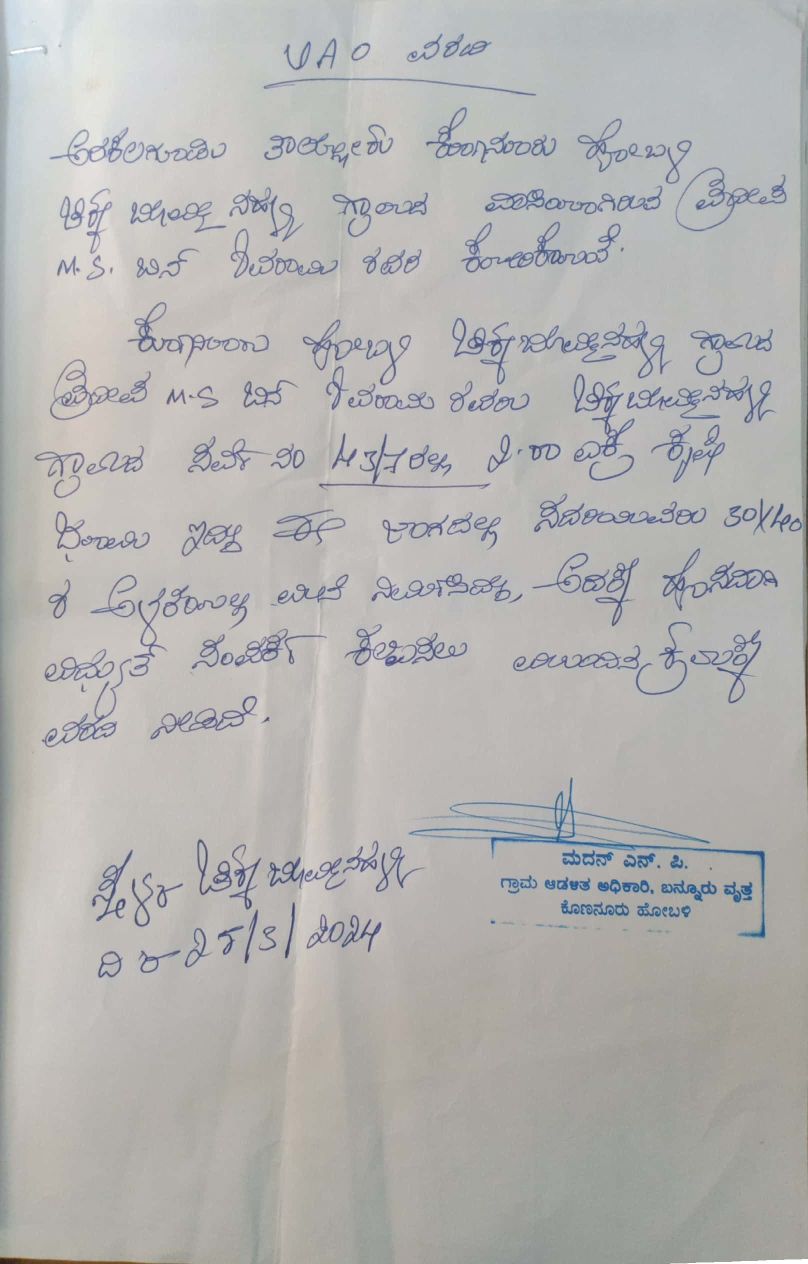 VAO ವರದಿ
ಅರಕಲಗೂಡು ತಾಲ್ಲೋಕು ಕೊಣನೂರು ಹೋಬ್ಳಿ
ಚಿಕ್ಕ ಬೊಮ್ಮನಹಳ್ಳಿ ಗ್ರಾಮದ ವಾಸಿಯಾಗಿರುವ
M.S. ಬಿನ್ ಶಿವರಾಮು ರವರ ಕೋರಿಕೆಯಿದೆ.
ಕೊಣನೂರು ಹೋಬ್ಳಿ ಚಿಕ್ಕಬೊಮ್ಮನಹಳ್ಳಿ ಗ್ರಾಮದ
M.S ಬಿನ್ ಶಿವರಾಮು ರವರು ಚಿಕ್ಕಬೊಮ್ಮನಹಳ್ಳಿ
ಗ್ರಾಮದ ಸರ್ವೆ ನಂ 43/7ರಲ್ಲಿ ಎಕ್ರೆ ಕೃಷಿ
ಭೂಮಿ ಇದ್ದು ಈ ಜಾಗದಲ್ಲಿ ಸದರಿಯವರು 30X40
ರ ಅಳತೆಯಲ್ಲಿ ಮನೆ ನಿರ್ಮಿಸಿದ್ದು, ಅದಕ್ಕೆ ಹೊಸದಾಗಿ
ವಿದ್ಯುತ್ ಸಂಪರ್ಕ ಕಲ್ಪಿಸಲು ಮುಂದಿನ ಕ್ರಮಕ್ಕೆ
ವರದಿ ನೀಡಿದೆ.
ಸ್ಥಳ:- ಚಿಕ್ಕಬೊಮ್ಮನಹಳ್ಳಿ
ದಿ:- /3/2024
ಮದನ್ ಎನ್. ಪಿ.
ಗ್ರಾಮ ಆಡಳಿತ ಅಧಿಕಾರಿ, ಬನ್ನೂರು ವೃತ್ತ
ಕೊಣನೂರು ಹೋಬಳಿ